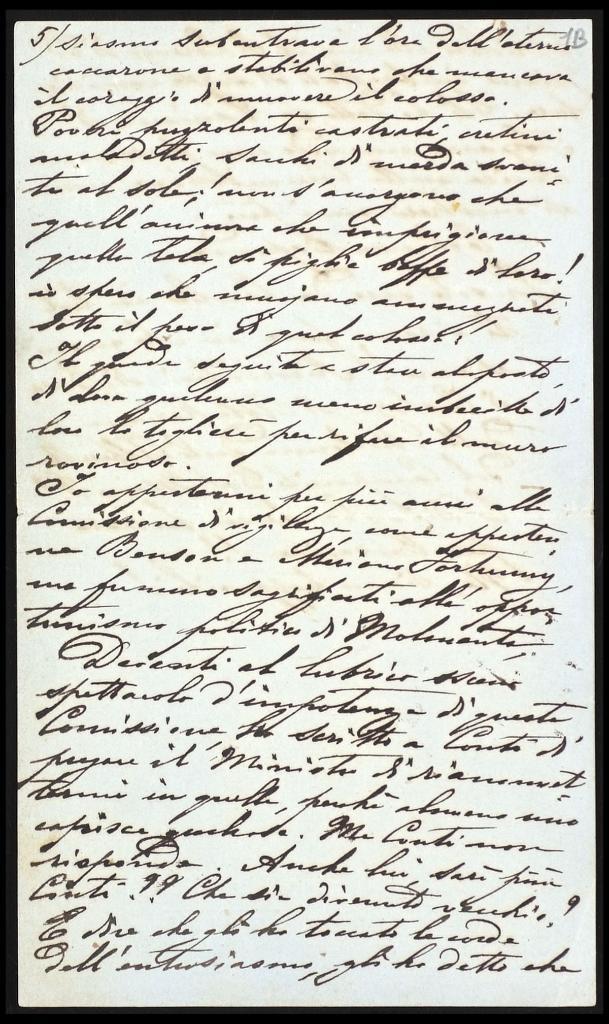 5/ siasmo subentrava l'ora dell'eterno 1B
caccarone e stabilivano che mancava
il coraggio di muovere il colosso.
Poveri puzzolenti castrati, cretini
maladetti, sacchi di merda sveni-
ti al sole! non s'accorgono che
quell'anima che imprigiona
quella tela, si piglia beffe di loro!
io spero che muojano
sotto il peso di quel colosso!
Il quadro seguita a stare al posto,
di dove qualcuno meno imbecille di
loro lo toglierà per rifare il muro
rovinoso.
Io appartenni per più anni alla
Comissione di vigilanza, come apparten-
ne Benson e Mariano Fortuny,
ma fummo sagrificati all'oppor-
tunismo politico di Molmenti.
Davanti al lubrico sceno
spettacolo d'impotenza di questa
Comissione, ho scritto a Conti di
pregare il Ministro di riammet-
termi in quella, perchè almeno uno
capisca qualcosa. Ma Conti non
risponde. Anche lui, sarà più
Conti?? Che sia diventato vecchio?
E dire che gli ho toccato le corde
dell'entusiasmo, gli ho detto che